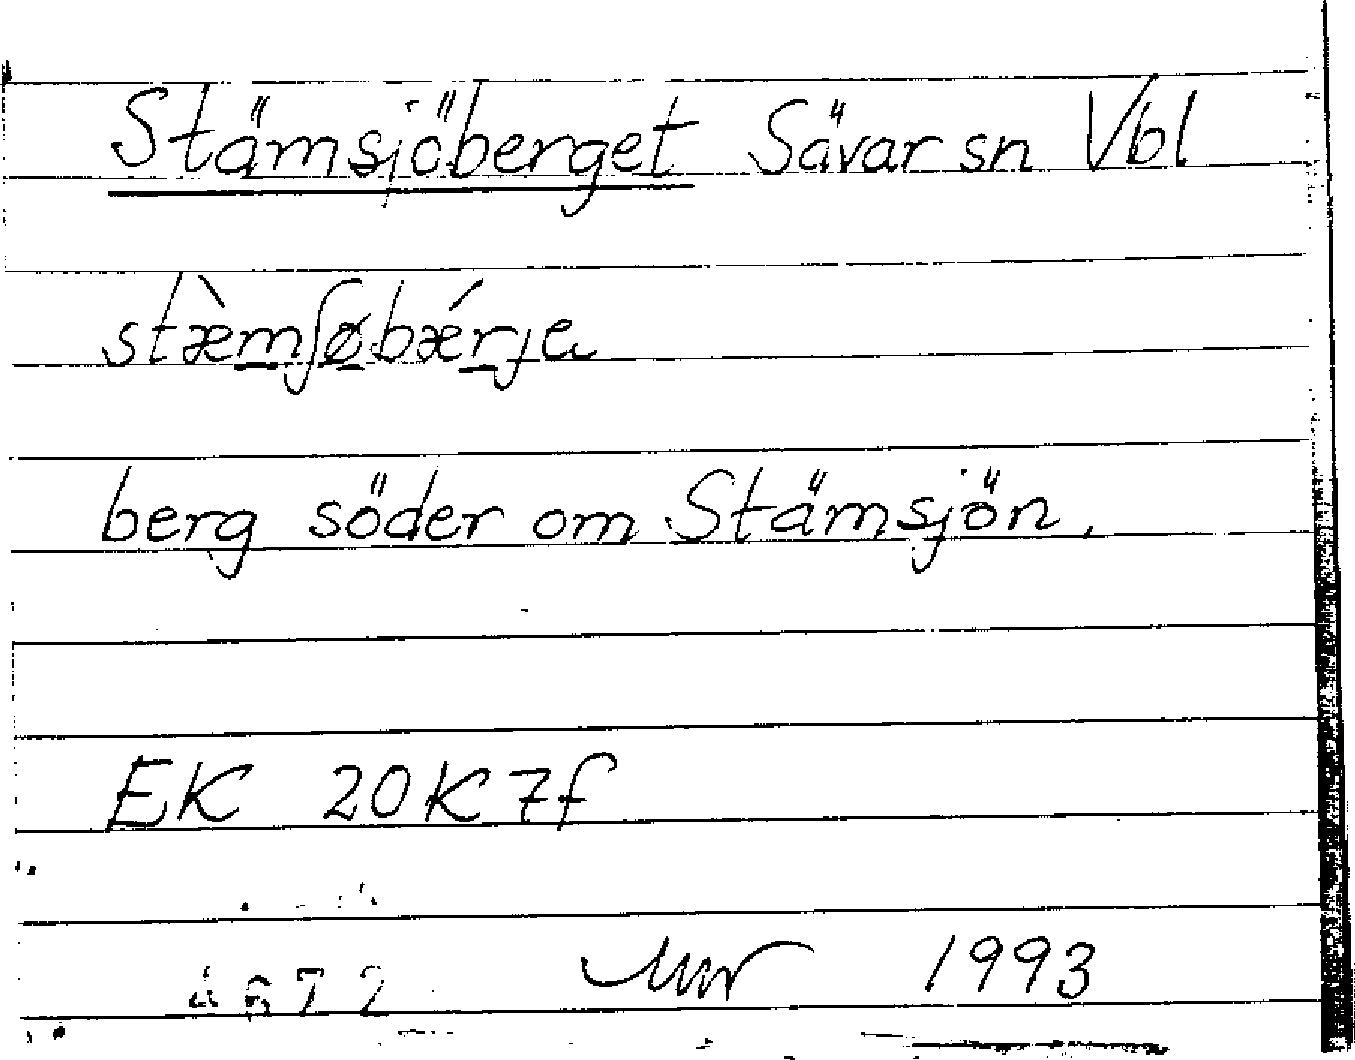 Stämsjöberget Sävar sn Vbl
stæ̀m̲ʃø̲bǽr̲ja
berg söder om Stämsjön.
EK 20K7f
1993